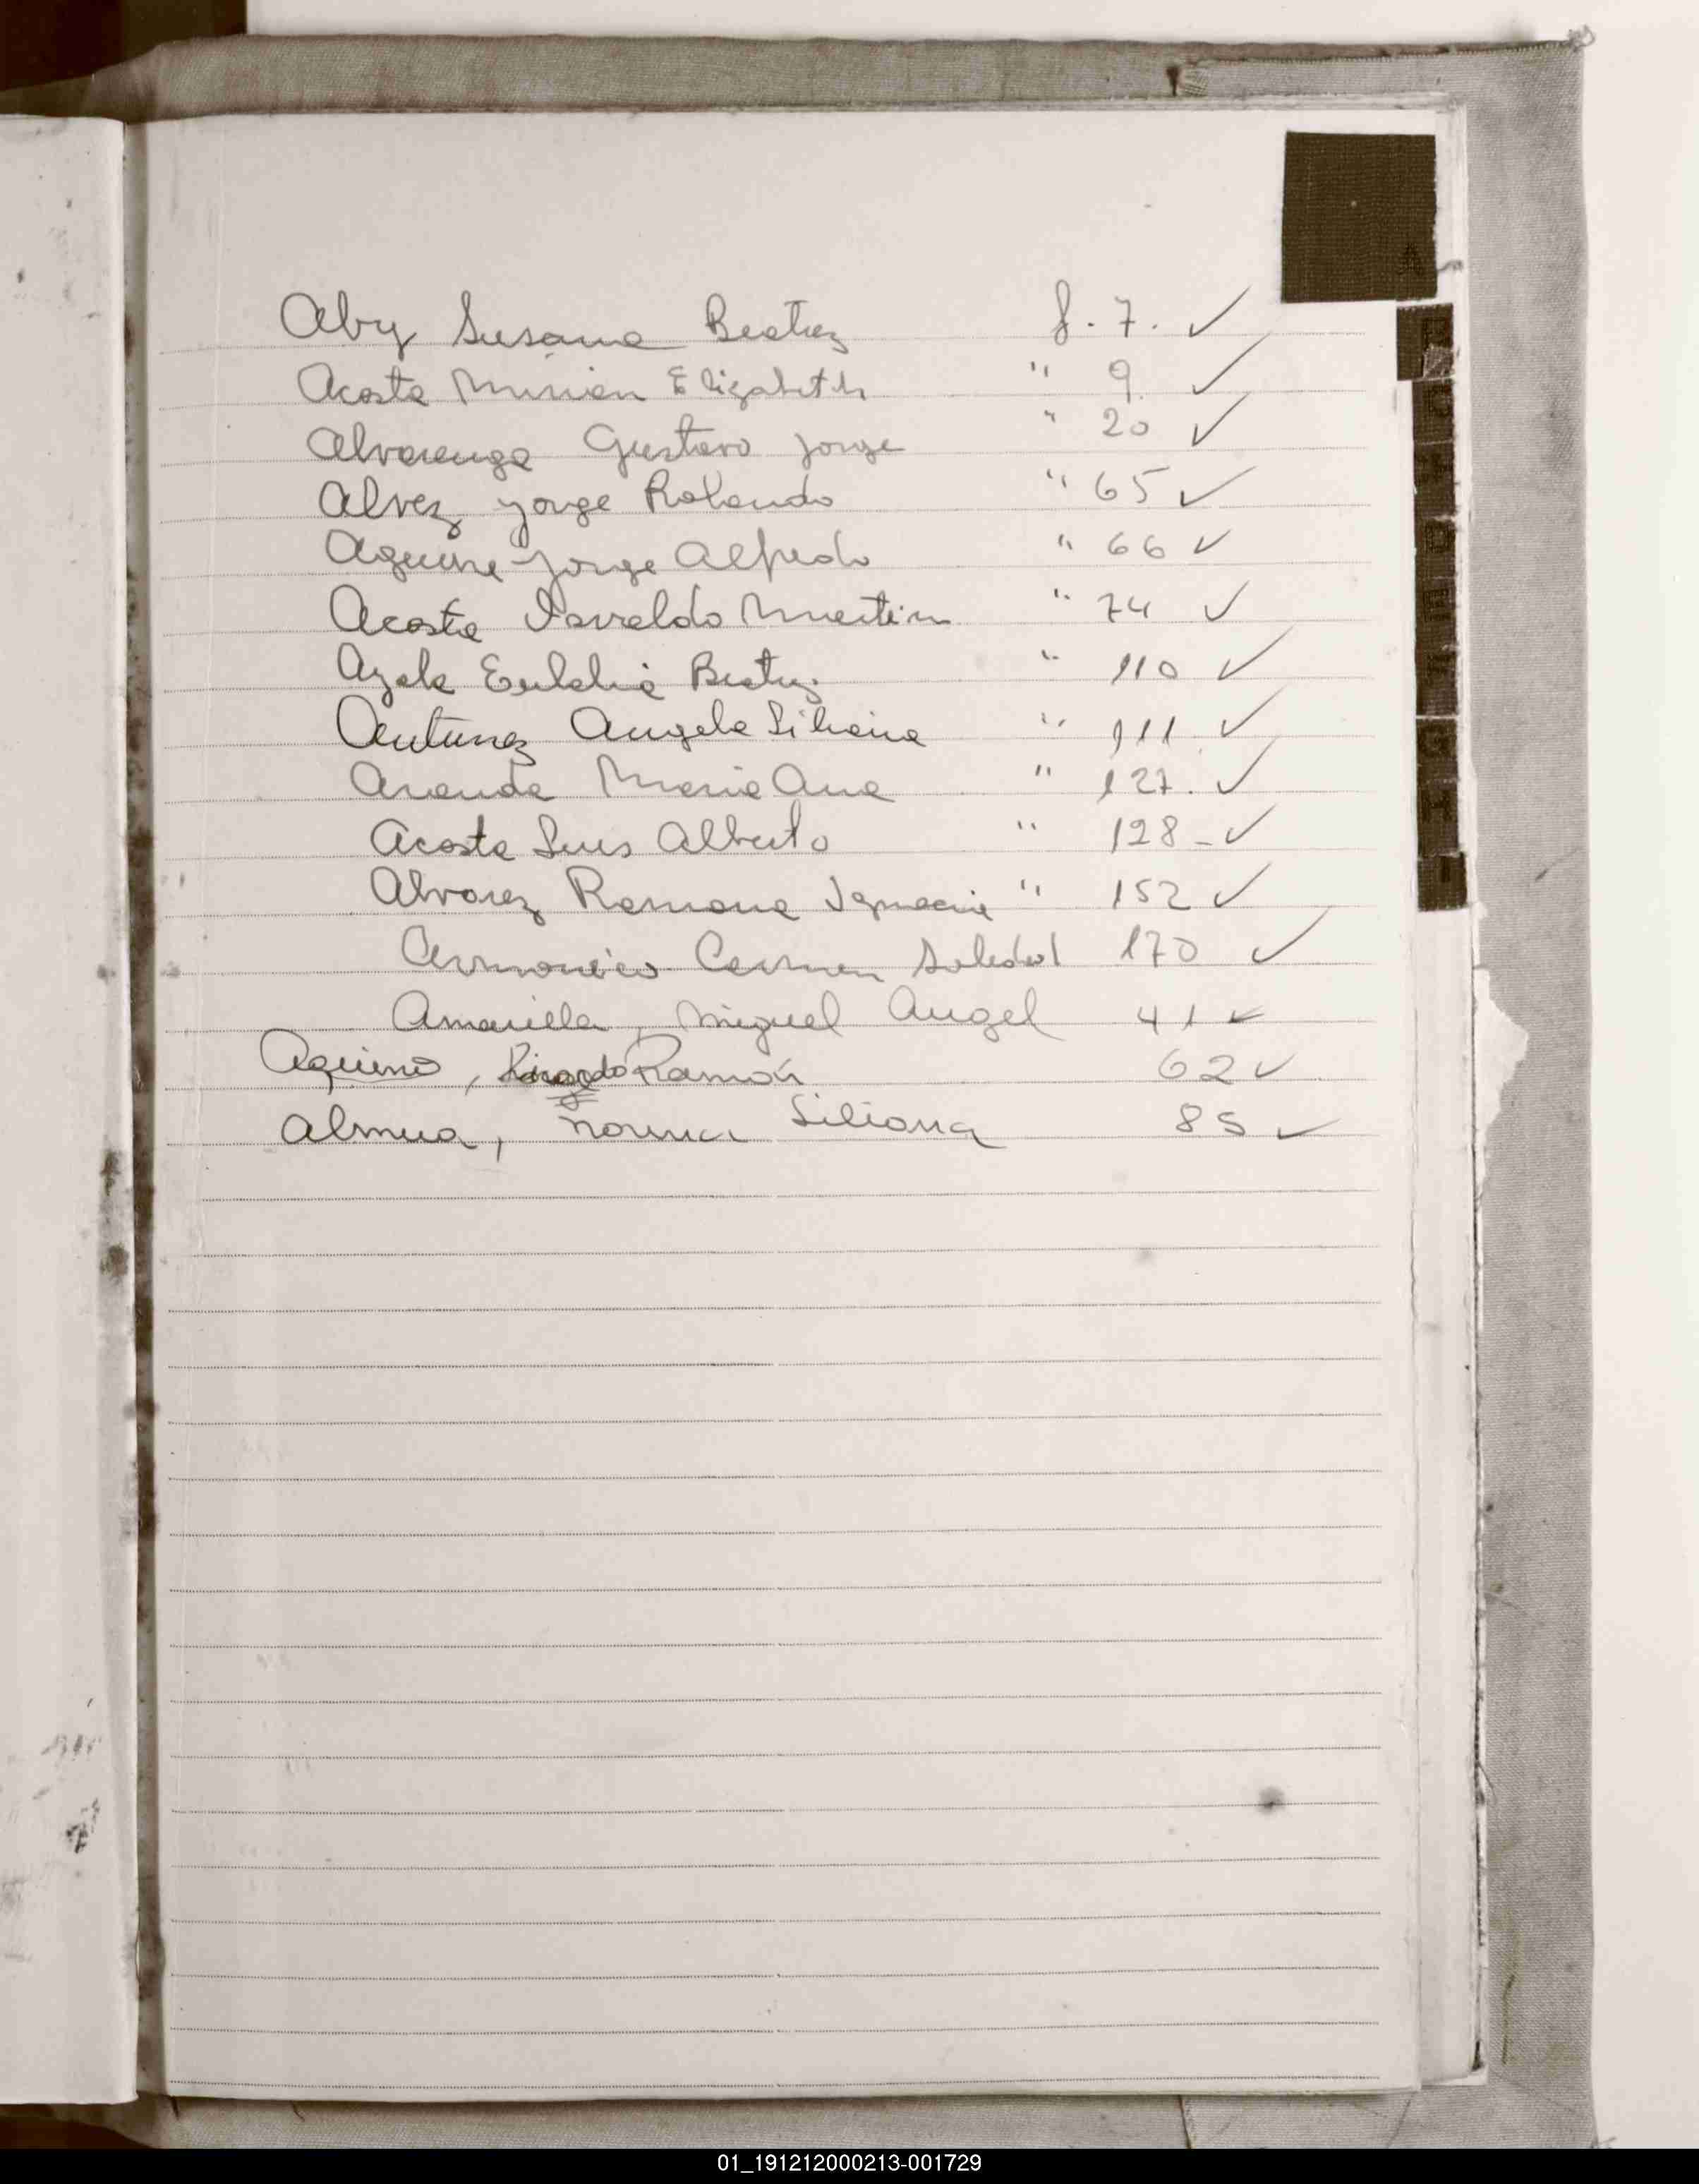 A
Aby Susana Beatriz f. 7. ✓
Acosta Mirian Elizabeth " 9 ✓
Alvarenga Gustavo Jorge " 20 ✓
Alvez Jorge Rolando " 65 ✓
Aguirre Jorge Alfredo " 66 ✓
Acosta Osvaldo Martin " 74 ✓
Ayala Eulalia Beatriz " 110 ✓
Antunez Angela Liliana " 111 ✓
Aranda Maria Ana " 127. ✓
Acosta Luis Alberto " 128 - ✓
Alvarez Ramona Ignacia " 152 ✓
Carmen Soledad 170 ✓
Amarilla, Miguel Angel 41 ✓
Aquino, Ramón 62 ✓
Almua, Norma Liliana 85 ✓
01_191212000213-001729